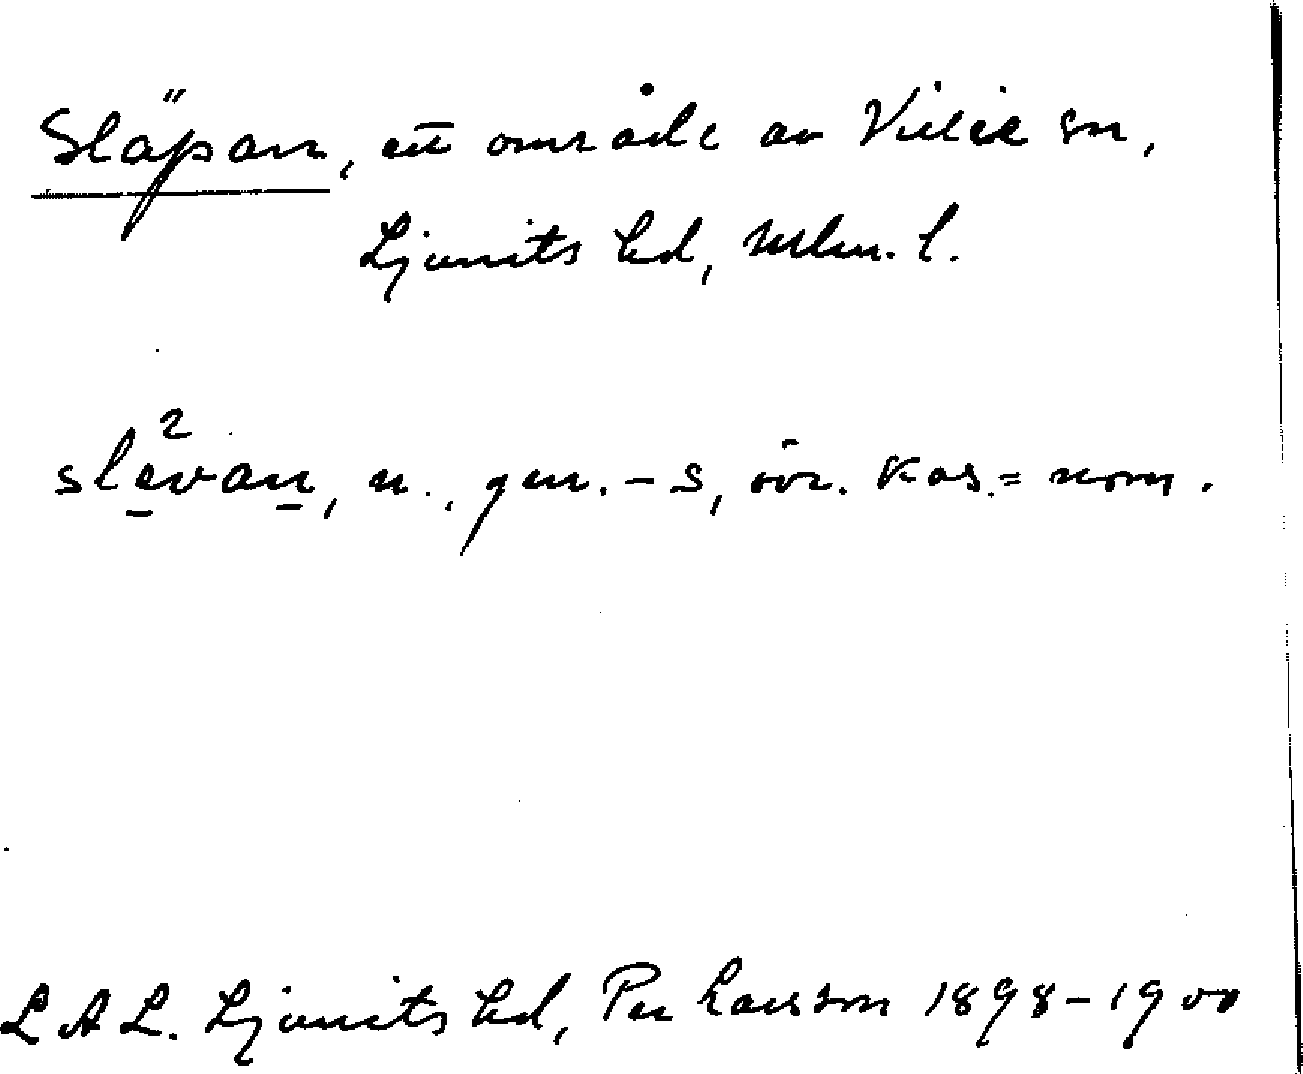 Släpan, ett område av Villie sn,
Ljunits hd, Mlm. l.
slevan, n., gen. -s, övr. kas. = nom.
LAL. Ljunits hd, Per Larsson 1898-1900